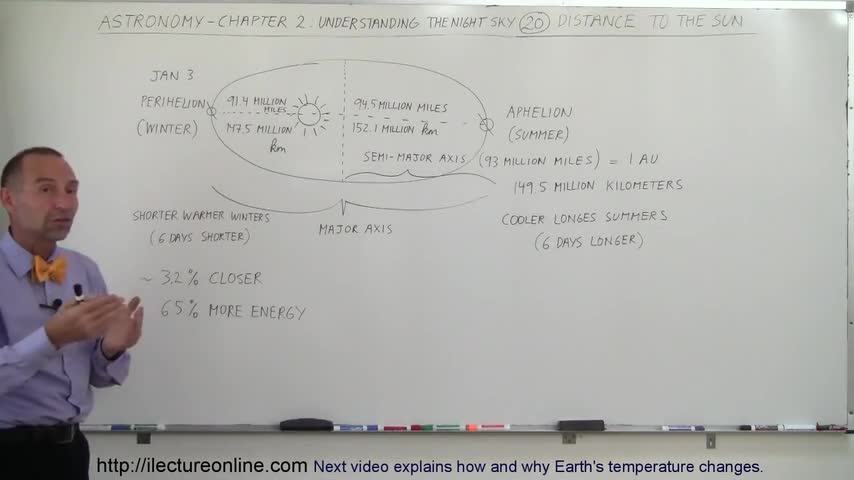 ASTRONOMY - CHAPTER 2: UNDERSTANDING THE NIGHT SKY (20) DISTANCE TO THE SUN
JAN 3
PERIHELION
(WINTER)
91.4 MILLION
MILES
147.5 MILLION
km
94.5 MILLION MILES
152.1 MILLION km
APHELION
(SUMMER)
SEMI-MAJOR AXIS (93 MILLION MILES) = 1 AU
149.5 MILLION KILOMETERS
SHORTER WARMER WINTERS
(6 DAYS SHORTER)
MAJOR AXIS
COOLER LONGES SUMMERS
(6 DAYS LONGER)
~ 3.2% CLOSER
6.5% MORE ENERGY
http://ilectureonline.com Next video explains how and why Earth's temperature changes.